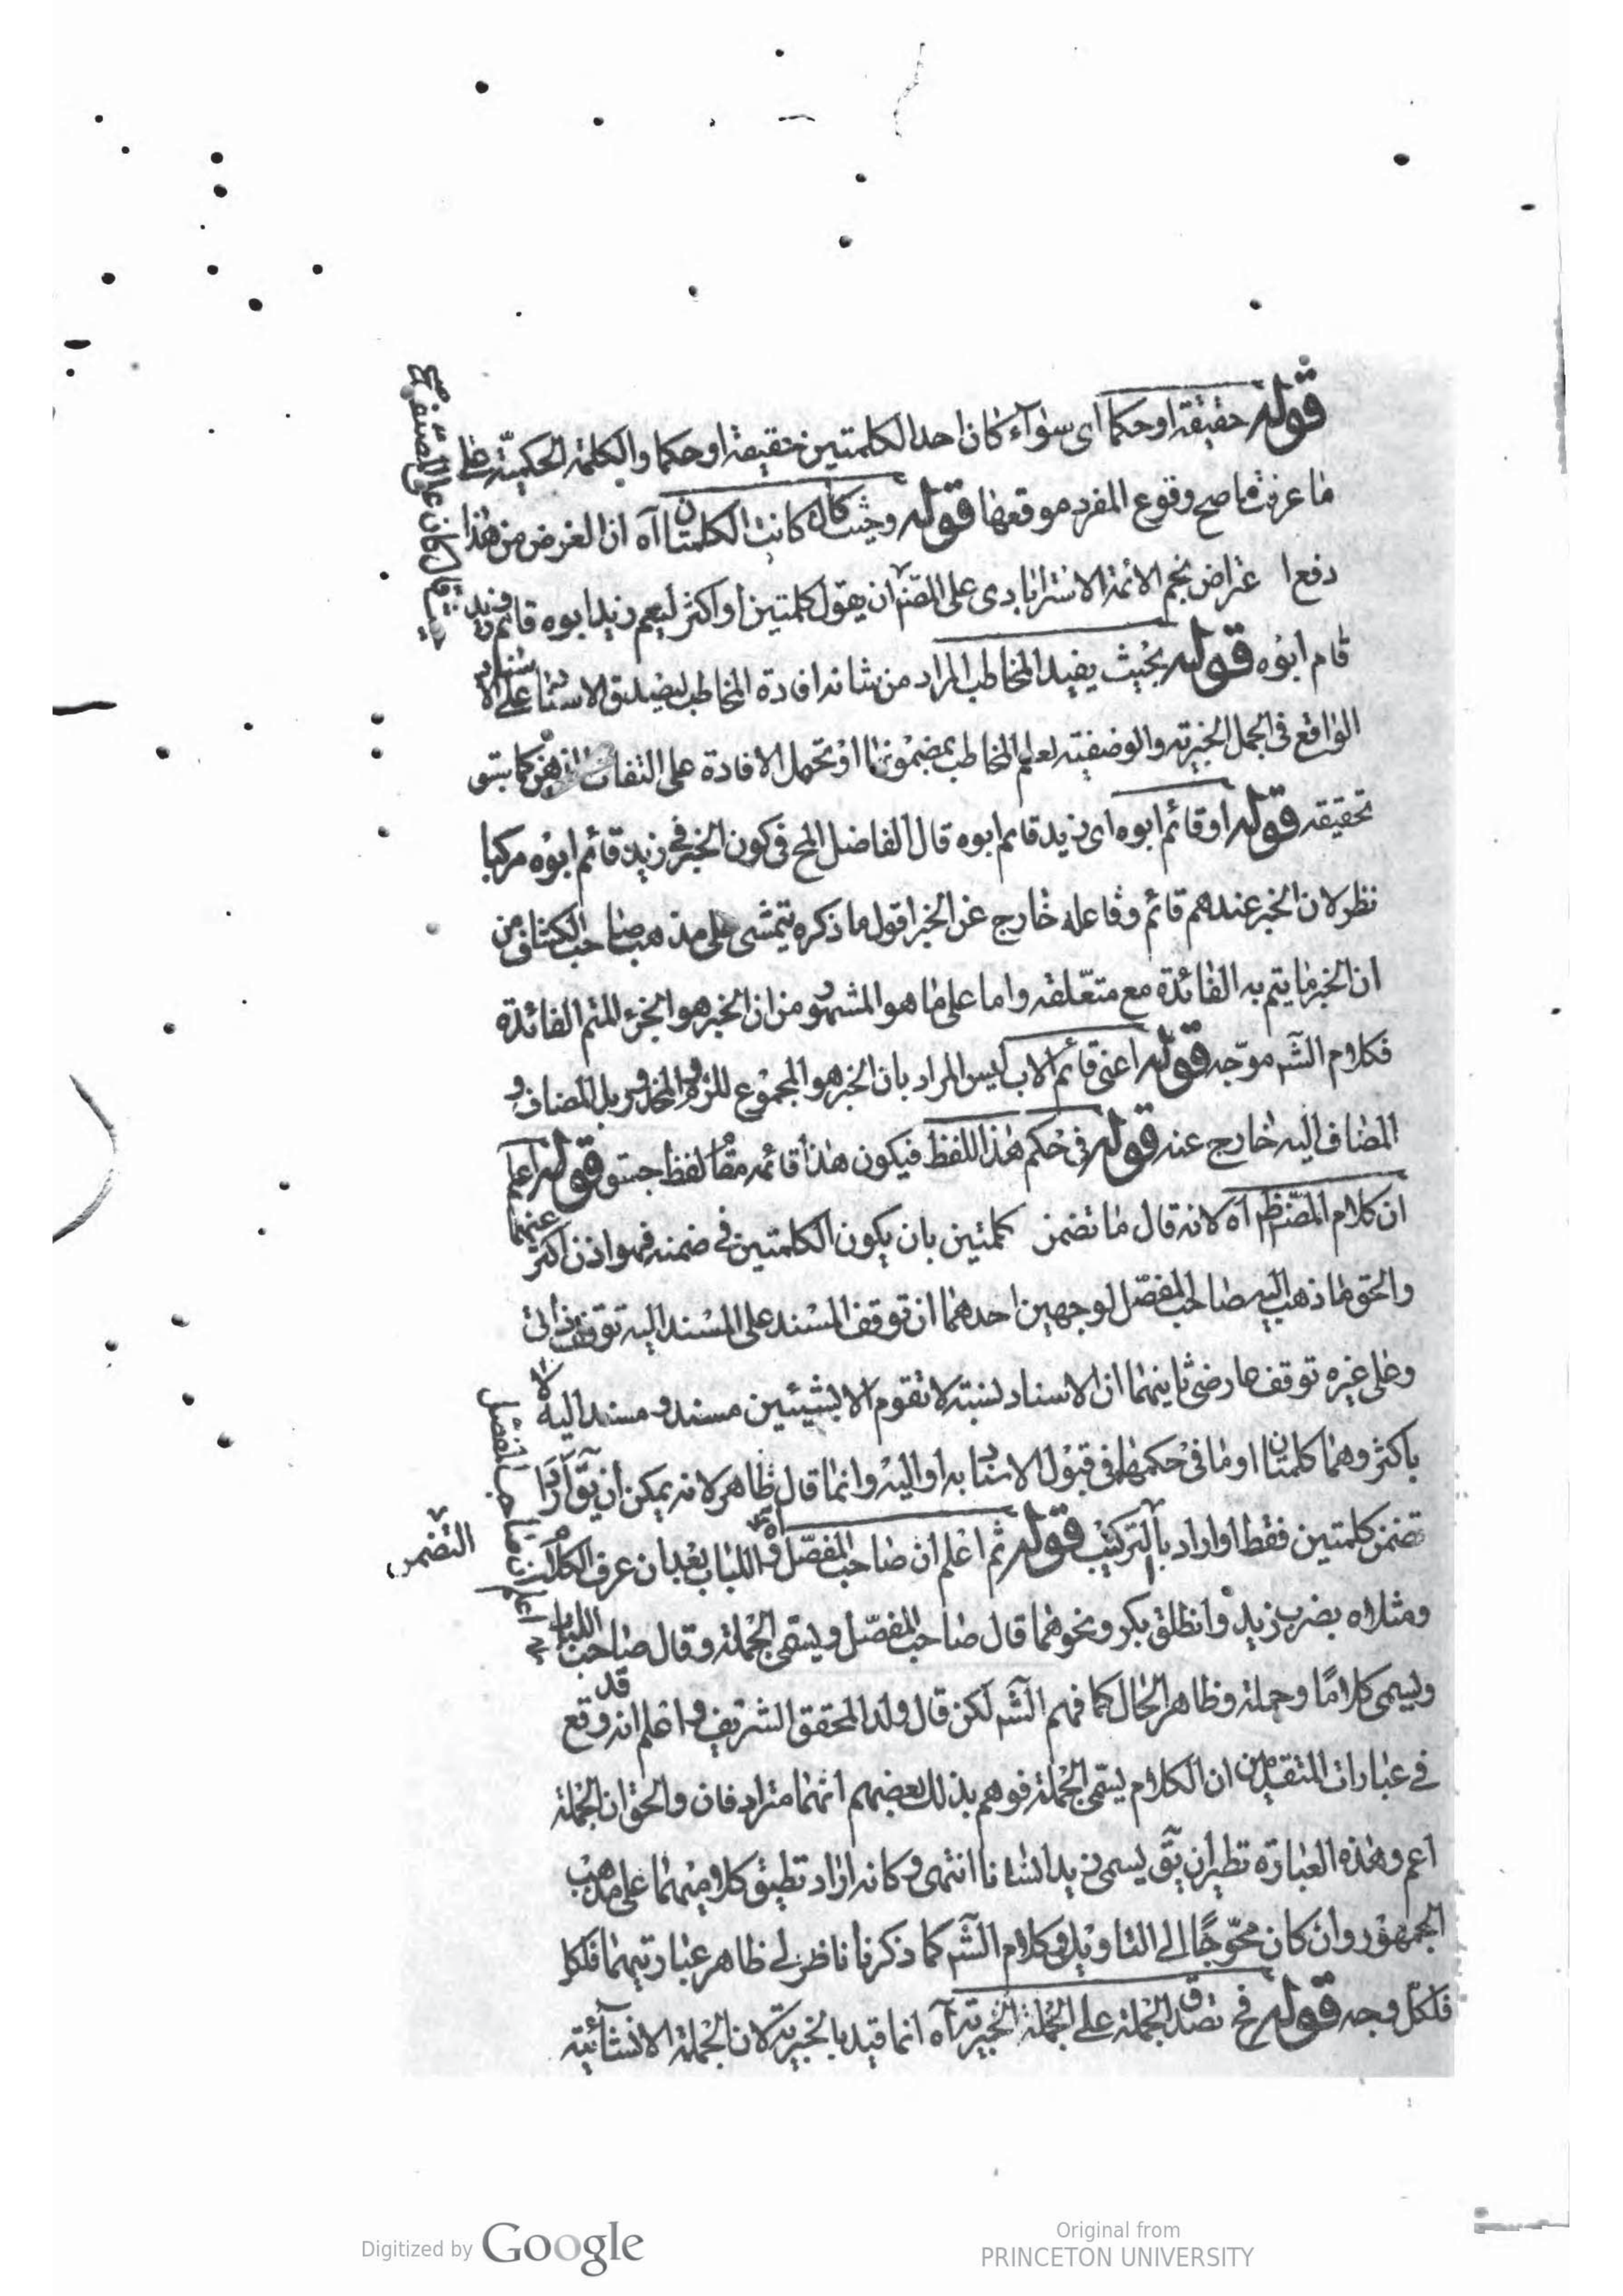 قوله حقيقة او حكما اى سوآء كان احد الكلمتين حقيقة او حكما والكلمة الحكمية على
ما عرفت ما صح وقوع المفرد موقعها قوله وحيث كان كانت الكلمتان اه ان الغرض من هذا
دفع اعتراض نجم الائمة الاسترابادى على المص ان يقول كلمتين او اكثر ليعم زيد ابوه قائم وزيد
قام ابوه قوله بحيث يفيد المخاطب المراد من شانه افادة المخاطب ليصدق الاسناد على الاسناد
الواقع فى الجمل الخبرية والوصفية لعلم المخاطب بمضمونها او تحمل الافادة على التفات الذهن كما يستو
تحقيقه قوله او قائم ابوه اى زيد قائم ابوه قال الفاضل المح فى كون الخبر فى زيد قائم ابوه مركبا
نظر لان الخبر عندهم قائم وفاعله خارج عن الخبر اقول ما ذكره يتمشى على مذهب صاحب الكشاف من
ان الخبر ما يتم به الفائدة مع متعلقه واما على ما هو المشهور من ان الخبر هو الجزء المتم الفائدة
فكلام الشم موجه قوله اعنى قائم الاب ليس المراد بان الخبر هو المجموع بل المضاف و
المضاف اليه خارج عنه قوله فى حكم هذا اللفظ فيكون هذا قائمه مقام لفظ جسق قوله اعلم
ان كلام المص ظ اه لانه قال ما تضمن كلمتين بان يكون الكلمتين فى ضمنه فهو اذن اكثر عنهما
والحق ما ذهب اليه صاحب المفصل لوجهين احدهما ان توقف المسند على المسند اليه توقف ذاتى
وعلى غيره توقف عارضى ثانيهما ان الاسناد نسبة لا تقوم الا بشيئين مسند و مسند اليه لا
باكثر وهما كلمتان او ما فى حكمهما فى قبول الاسناد به او اليه وانما قال ظاهر لانه يمكن ان يق اراد
تضمن كلمتين فقط او اراد بالتركيب قوله ثم اعلم ان صاحب المفصل و اللباب بعد ان عرف الكلام
ومثلاه بضرب زيد وانطلق بكر ونحوهما قال صاحب المفصل ويسمى الجملة وقال صاحب اللباب
ويسمى كلاما وجملة وظاهر الحال كما فهم الشم لكن قال ولد المحقق الشريف و اعلم انه قد وقع
فى عبارات المتقدمين ان الكلام يسمى الجملة فوهم بذلك بعضهم انهما مترادفان والحق ان الجملة
اعم وهذه العبارة نظير ان يق يسمى زيد انسانا انتهى وكانه اراد تطبيق كلاميهما على مذهب
الجمهور وان كان محوجا الى التاويل وكلام الشم كما ذكرنا ناظر لى ظاهر عبارتيهما فلكا
فلكل وجه قوله فح تصدق الجملة على الجملة الخبرية اه انما قيد بالخبرية لان الجملة الانشائية
التضمن